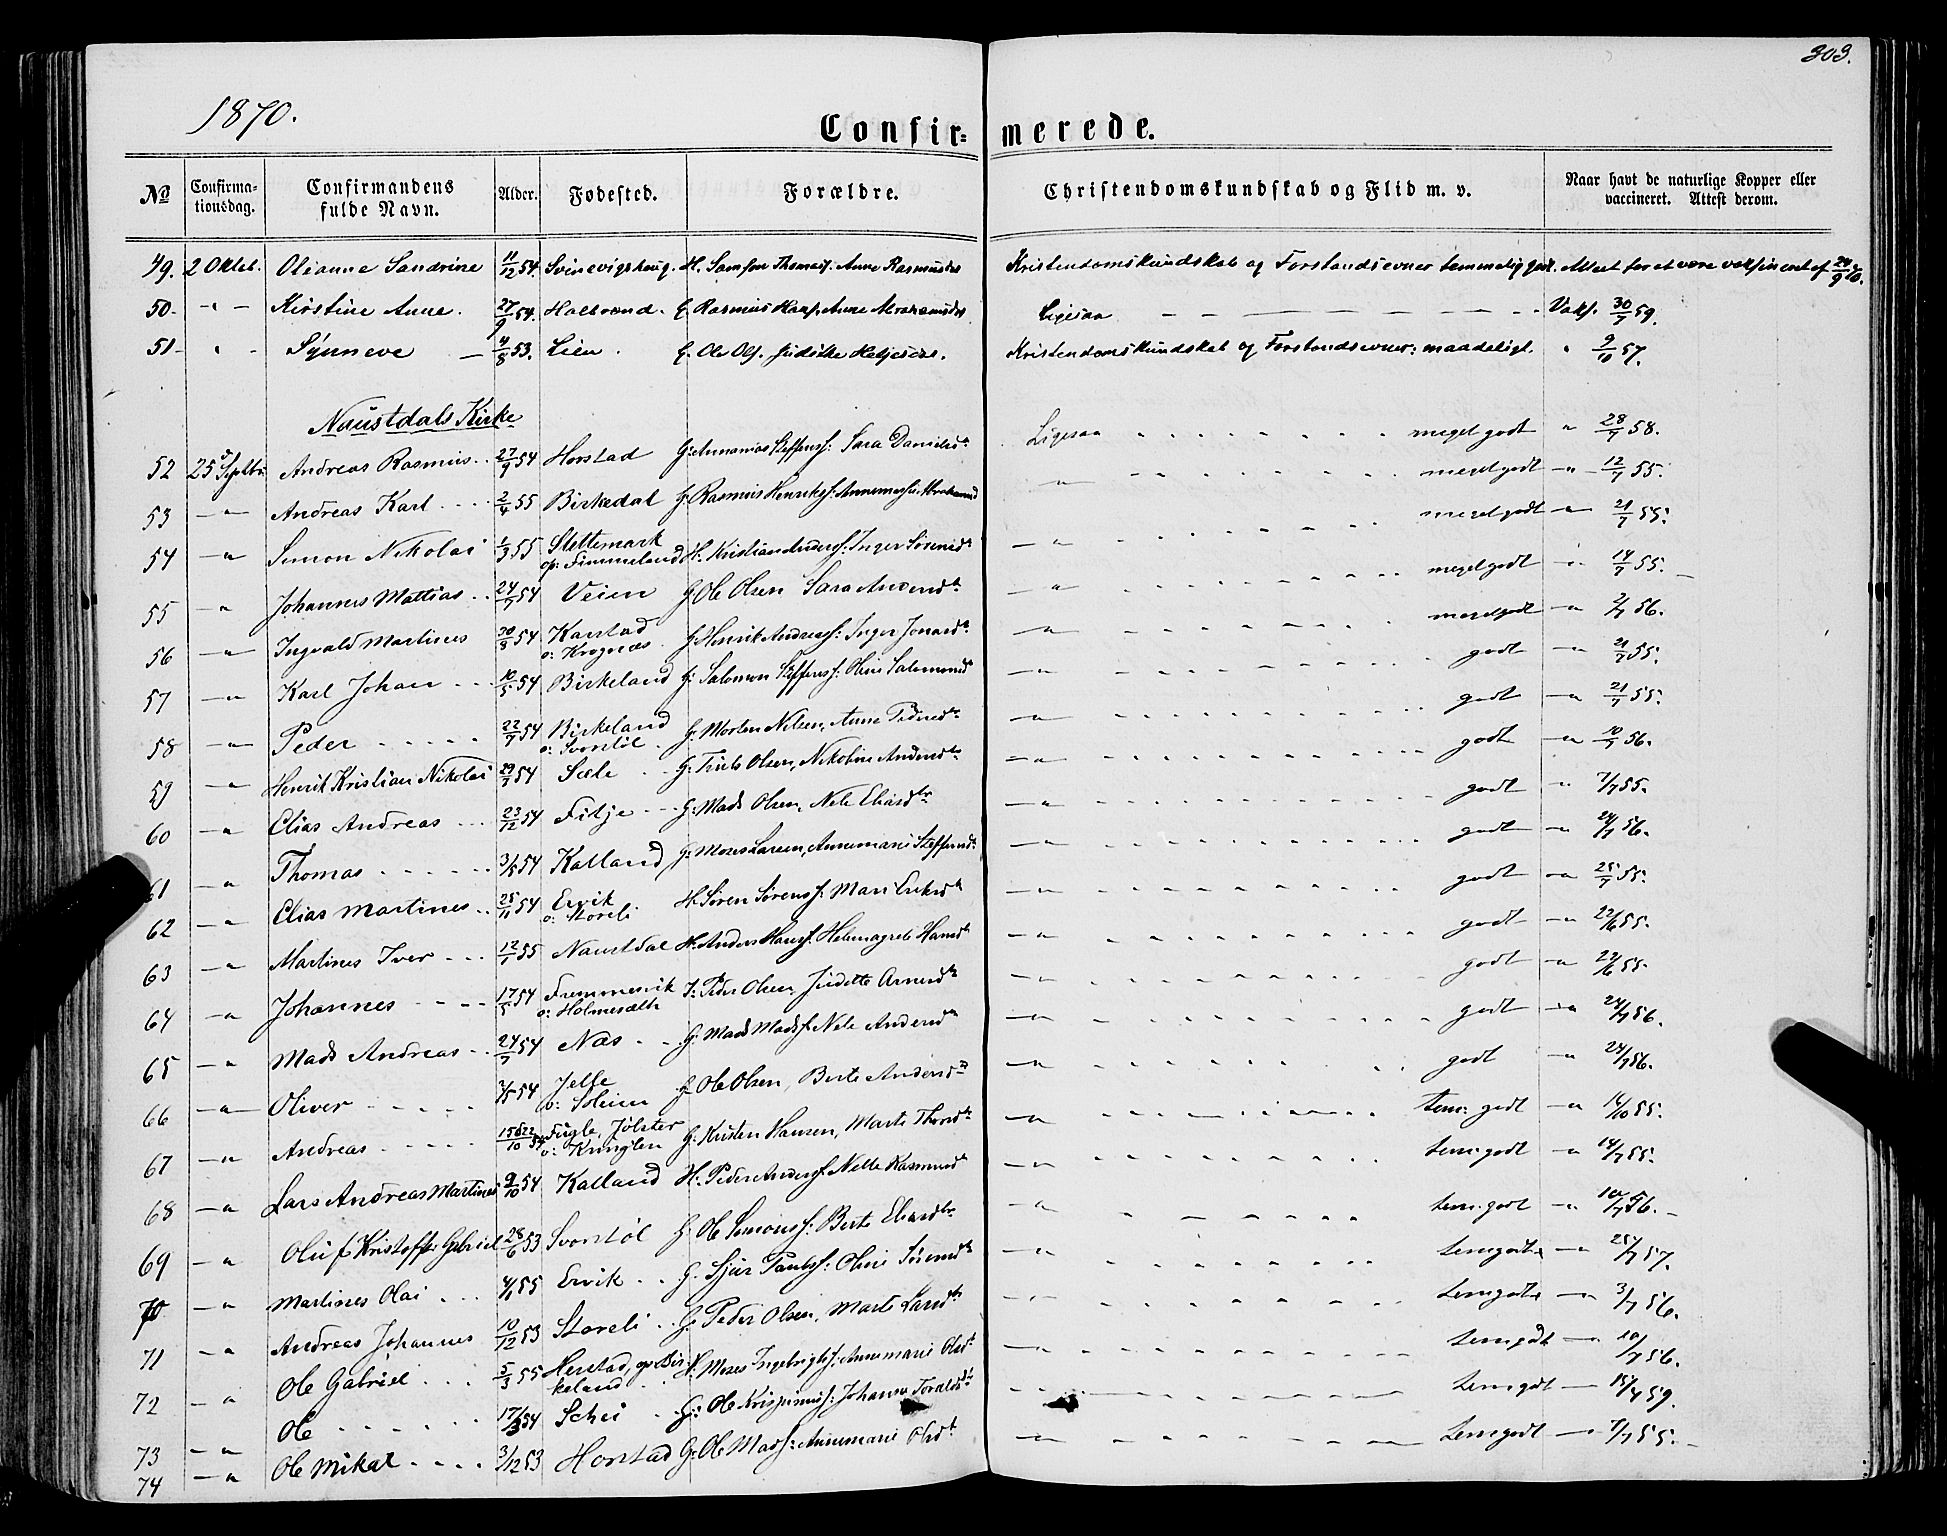 303.
1870.
Confirmerede.
No Confirmationsdag. Confirmandens fulde Navn. Alder. Fødested. Forældre. Christendomskundskab og Flid m. v. Naar havt de naturlige Kopper eller vaccineret. Attest derom.
49. 2 Oktbr. Olianne Sandrine 11/12 54. Svinevigshaug. H. Samson Thomass. Anne Rasmusdr Kristendomskundskab og Forstandsevner temmelig godt. Attest for at være vaksineret af 29/9 70.
50. " - Kirstine Anne. 27/9 54. Halbrend. G. Rasmus Hans. Anne Abrahamsdr Ligesaa - - - - Vaks. 30/7 59.
51 " - Synneve - 4/8 53. Lien. G. Ole Ols. Judithe Helgesdr. Kristendomskundskab og Forstandsevner: maadeligt. " 9/10 57.
Naustdals Kirke
52 25 Septbr. Andreas Rasmus. 27/9 54 Horstad G: Annanias Steffenss: Sara Danielsdr Ligesaa - - - meget godt " 28/7 58.
53 -"- Andreas Karl 2/4 55 Birkedal G. Rasmus Henrikss. Annemarie Abrahamsd -"- meget godt -"- 12/7 55.
54 -"- Simon Nikolai 1/3 55 Slettemark op: Fimmeland H. Kristian Anderss: Inger Sørensdr -"- meget godt -"- 21/7 55.
55 -"- Johannes Mattias 24/7 54 Veien G Ole Olsen Sara Anders dr -"- meget godt -"- 14/7 55.
56 -"- Ingvald Martines 30/8 54 Karstad o: Krognæs G Henrik Anderss: Inger Jonasdr -"- meget godt -"- 2/7 56.
57 -"- Karl Johan 10/5 54 Birkeland G: Salomon Steffenss: Oline Salomonsd -"- godt -"- 21/7 55.
58 -"- Peder 22/7 54 Birkeland o: Svortøl G. Morten Nilsen, Anne Pedersdr -"- godt -"- 21/7 55.
59 -"- Henrik Kristian Nikolai 29/7 54 Sæle G: Truls Olsen, Nikoline Andersdr -"- godt -"- 10/7 56.
60 -"- Elias Andreas 23/12 54 Fitje G: Mads Olsen, Nele Eliasdr -"- godt " 7/7 55.
61 -"- Thomas 3/8 54 Kalland G: Moses Larsen, Annemarie Steffensdr -"- godt -"- 24/7 56.
62 -"- Elias Martines 25/11 54 Ervik o: Storeli H. Søren Sørenss: Mari Eriksdr -"- godt -"- 25/7 55.
63 -"- Martines Iver 12/1 55 Naustdal H. Anders Hanss. Helemagrete Hansdr -"- godt -"- 22/6 55.
64 -"- Johannes 17/5 54 Fremmervik o: Holmesæth I: Peder Olsen, Judette Arnesdr -"- godt -"- 22/6 55.
65 -"- Mads Andreas 24/7 54 Næs G: Mads Madss. Nele Andersdr -"- godt -"- 24/7 56.
66 -"- Oliver 3/5 54 Jelle o: Soleim G Ole Olsen, Berte Andersdr -"- godt -"- 24/7 56.
67 -"- Andreas 15 d 22/10 54 Fugle, Jølster o: Kringlen G: Kristen Hansen, Marte Thorsdr -"- tem: godt -"- 14/10 55.
68 -"- Lars Andreas Martines 9/10 54 Kalland H: Peder Anderss. Nelle Rasmusd -"- tem: godt -"- 14/7 55.
69 -"- Oluf Kristoffer Gabriel 28/6 53 Svortøl G: Ole Simonss: Berte Eliasdr -"- tem: godt -"- 10/7 56.
70 -"- Martines Olai 4/1 55 Ervik G. Sjur Paulss: Oline Sørensdr -"- tem godt -"- 25/7 57.
71 -"- Andreas Johannes 10/12 53 Storeli G: Peder Olsen, Marte Larsdr - tem godt -"- 3/7 56.
72 -"- Ole Gabriel 5/3 55 Herstad, op Birkeland H: Moses Ingebrigts: Annemarie Olsdr -"- tem godt - 10/7 56.
73 -"- Ole 17/3 54 Schei G: Ole Krispinuss: Johanna Toraldsdr -"- tem godt - 15/4 59.
74 -"- Ole Mikal 3/12 53 Horstad G: Ole Madss: Annemarie Olsdr -"- tem godt - 7/7 55.